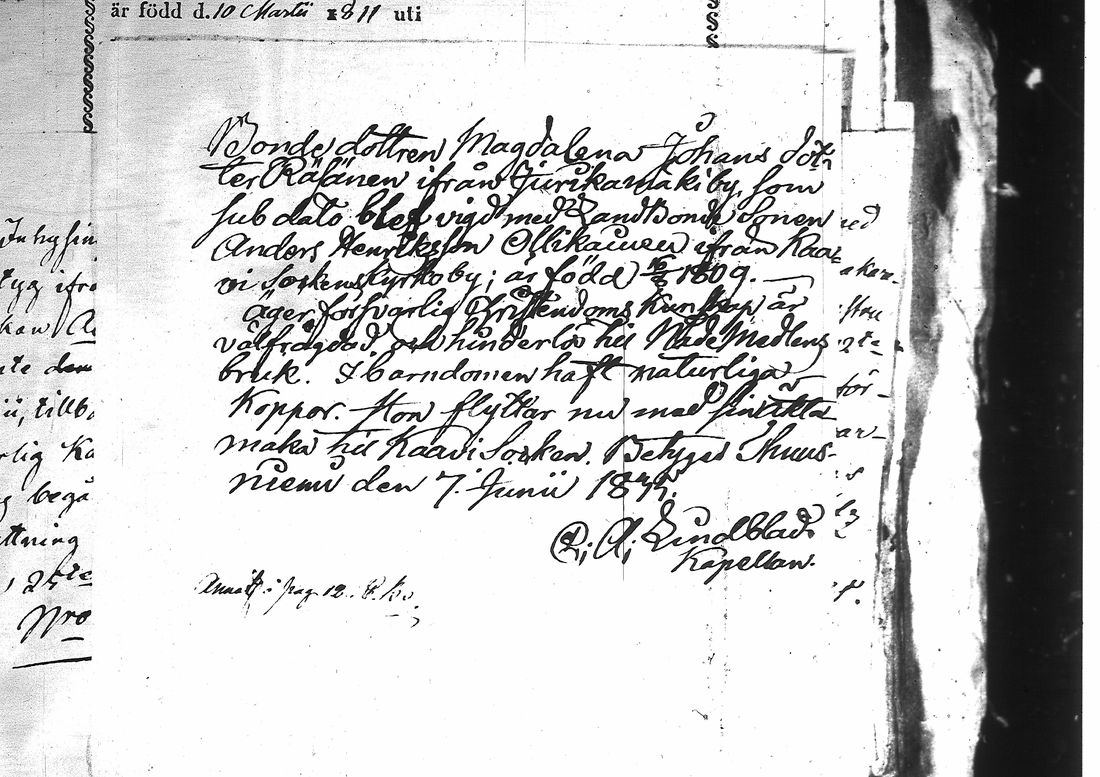 är född d. 10 Martii 1811 uti
Bonde dottren Magdalena Johans dot-
ter Räsänen ifrån Jurikamäki by, som
sub dato blef vigd med LandBonde Sonen
Anders Henriksson Ollikainen ifrån Kaa-
vi Sockens Kyrkoby; är född 1809. —
Äger försvarlig Christendoms Kunskap är
välfrägdad och hinderlös till NådeMedlens
bruk. I barndomen haft naturliga
Koppor. Hon flyttar nu med sin äkta
maka till Kaavi Socken. Betygas Thuus-
niemi den 7. Junii 18
Lindblad
Kapellan.
pag 12
Inhysin
tyg ifrå
kan
te den
tillb
rlig Ka
begå
ttning
25te
Pro
ste
för-
ar-